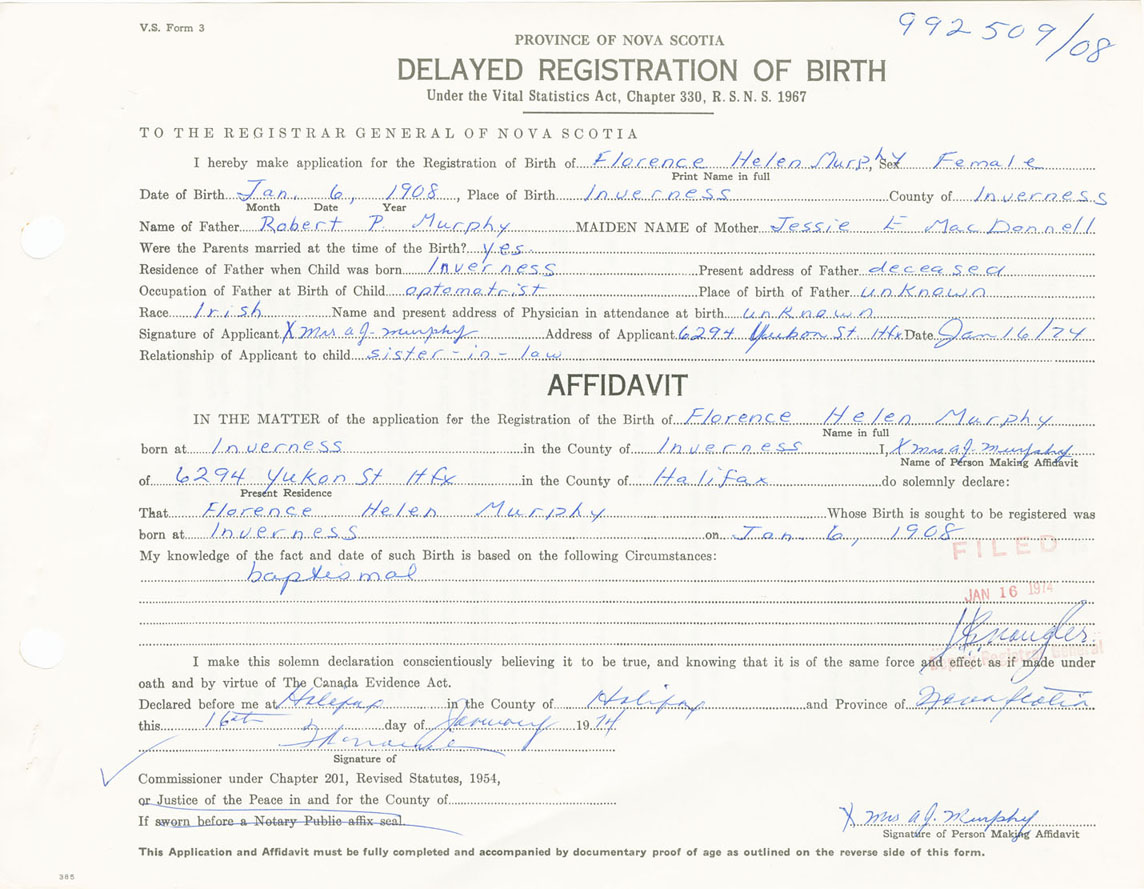 V.S. Form 3
992509/08
PROVINCE OF NOVA SCOTIA
DELAYED REGISTRATION OF BIRTH
Under the Vital Statistics Act, Chapter 330, R. S. N. S. 1967
TO THE REGISTRAR GENERAL OF NOVA SCOTIA
I hereby make application for the Registration of Birth of Florence Helen Murphy, Sex Female
Print Name in full
Date of Birth Jan. 6, 1908, Place of Birth Inverness County of Inverness
Month Date Year
Name of Father Robert P. Murphy MAIDEN NAME of Mother Jessie E MacDonnell
Were the Parents married at the time of the Birth? yes
Residence of Father when Child was born Inverness Present address of Father deceased
Occupation of Father at Birth of Child optometrist Place of birth of Father unknown
Race Irish Name and present address of Physician in attendance at birth unknown
Signature of Applicant X Mrs A J. Murphy Address of Applicant 6294 Yukon St Hfx Date Jan 16/74
Relationship of Applicant to child sister-in-law
AFFIDAVIT
IN THE MATTER of the application for the Registration of the Birth of Florence Helen Murphy
Name in full
born at Inverness in the County of Inverness I, X Mrs A J. Murphy
Name of Person Making Affidavit
of 6294 Yukon St Hfx in the County of Halifax do solemnly declare:
Present Residence
That Florence Helen Murphy Whose Birth is sought to be registered was
born at Inverness on Jan. 6, 1908
My knowledge of the fact and date of such Birth is based on the following Circumstances:
FILED
baptismal
JAN 16 1974
Registrar General
I make this solemn declaration conscientiously believing it to be true, and knowing that it is of the same force and effect as if made under
oath and by virtue of The Canada Evidence Act.
Declared before me at Halifax in the County of Halifax and Province of Nova Scotia
this 16th day of January 1974
Signature of
Commissioner under Chapter 201, Revised Statutes, 1954,
or Justice of the Peace in and for the County of
If sworn before a Notary Public affix seal.
X Mrs A J. Murphy
Signature of Person Making Affidavit
This Application and Affidavit must be fully completed and accompanied by documentary proof of age as outlined on the reverse side of this form.
385